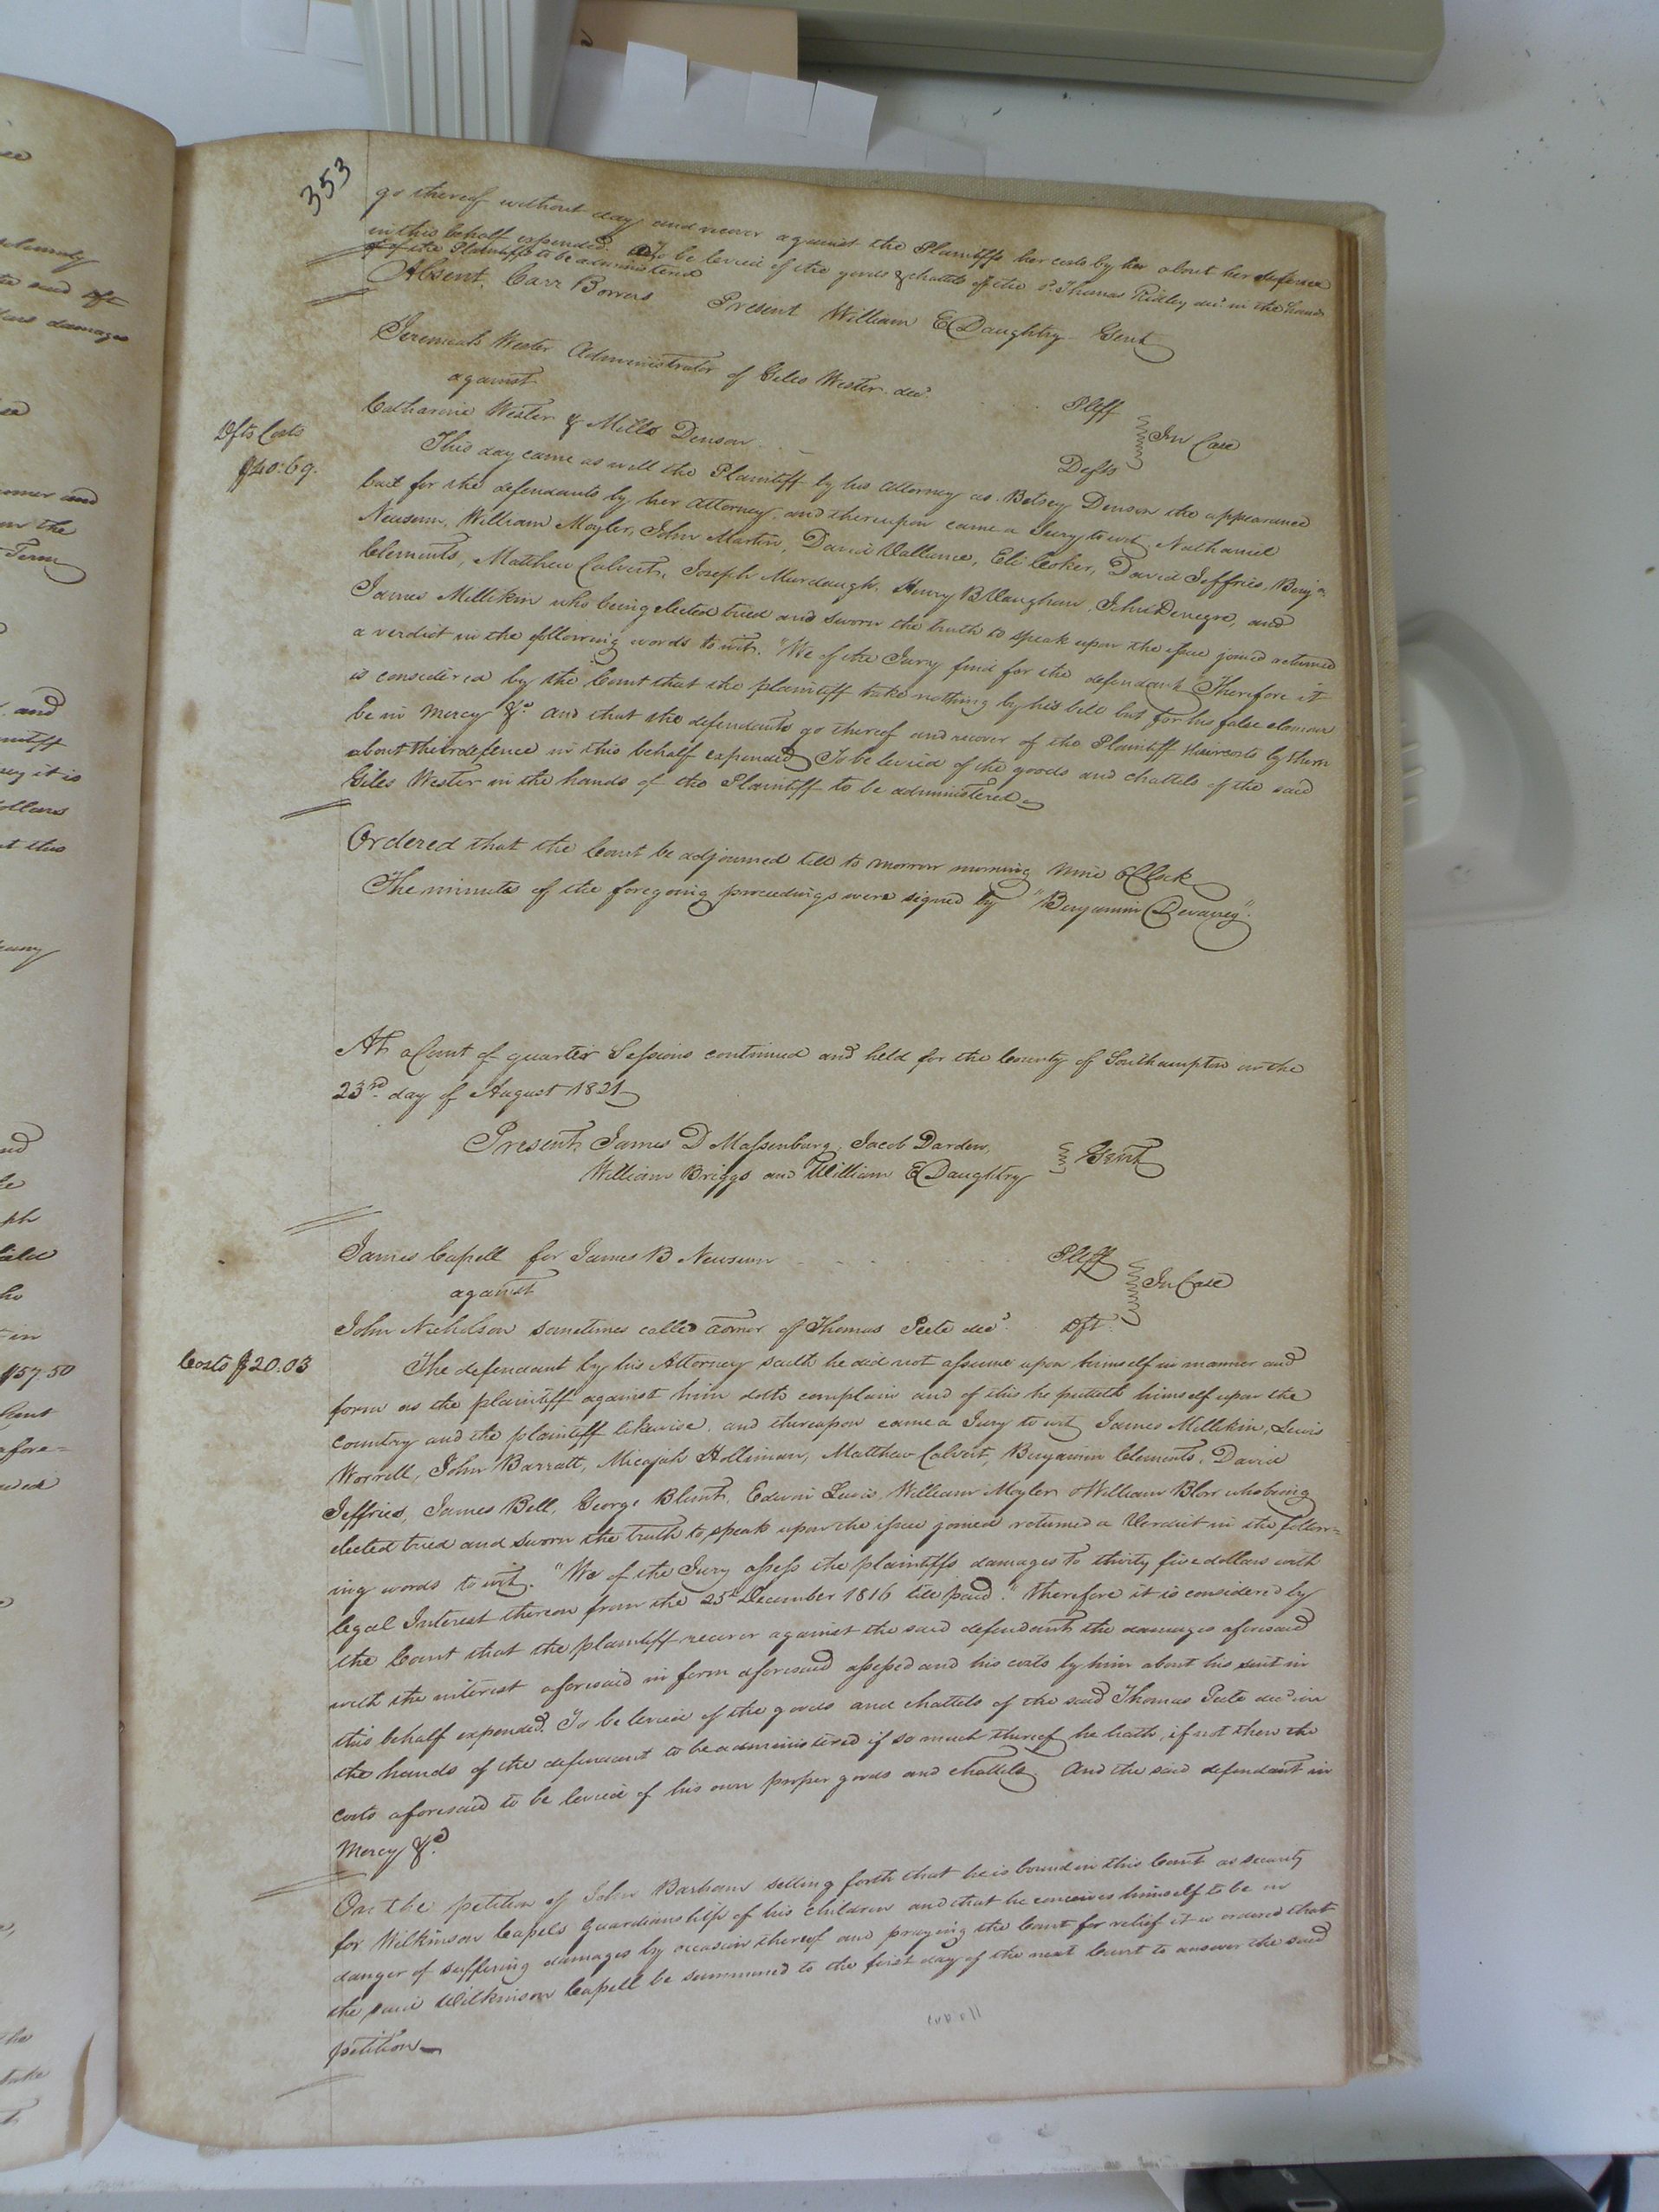 353
go thereof without day and recover against the Plaintiffs her costs by her about her defense
in this behalf expended. To be levied of the goods & chattels of the sd. Thomas Ridley decd. in the hands
of the Plaintiffs to be administered
Absent, Carr Bowers Present William E Daughtry Gent
Jeremiah Wester Administrator of Giles Wester decd. Pltff
against
In Case
Catharine Wester & Mills Denson Defts
Dfts Costs
$40.69.
This day came as well the Plaintiff by his attorney as Betsey Denson the appearance
bail for the defendants by her attorney, and thereupon came a Jury to wit, Nathaniel
Newsum, William Moyler, John Martin, David Vallance, Eli Coker, David Jeffries, Benja
Clements, Matthew Calvert, Joseph Murdaugh, Henry B Vaughan, John Denegre, and
James Millikin who being elected tried and sworn the truth to speak upon the issue joined returned
a verdict in the following words to wit. "We of the Jury find for the defendant" Therefore it
is considered by the Court that the plaintiff take nothing by his bill but for his false clamour
be in mercy &c. and that the defendants go thereof and recover of the Plaintiff their costs by them
about their defence in this behalf expended To be levied of the goods and chattels of the said
Giles Wester in the hands of the Plaintiff to be administered
Ordered that the Court be adjourned till to morrow morning nine OClock
The minutes of the foregoing proceedings were signed by "Benjamin Devany".
At a Court of quarter Sessions continued and held for the County of Southampton on the
23rd. day of August 1821
Present James D Massenburg, Jacob Darden,
Gent
William Briggs and William E Daughtry
James Capell for James B Newsum Pltff
against
In Case
John Nicholson sometimes called admor of Thomas Peete decd. Dft.
Costs $20.03
The defendant by his Attorney saith he did not assume upon himself in manner and
form as the plaintiff against him doth complain and of this he putteth himself upon the
country and the plaintiff likewise, and thereupon came a Jury to wit James Millikin, Lewis
Worrell, John Barratt, Micajah Holliman, Matthew Calvert, Benjamin Clements, David
Jeffries, James Bell, George Blunt, Edwin Lewis, William Moyler & William Blow who being
elected tried and sworn the truth to speak upon the issue joined returned a Verdict in the follow=
ing words to wit. "We of the Jury assess the plaintiffs damages to thirty five dollars with
legal Interest thereon from the 25th December 1816 till paid." Therefore it is considered by
the Court that the plaintiff recover against the said defendant the damages aforesaid
with the interest aforesaid in form aforesaid assessed and his costs by him about his suit in
this behalf expended. To be levied of the goods and chattels of the said Thomas Peete decd in
the hands of the defendant to be administered if so much thereof he hath, if not then the
costs aforesaid to be levied of his own proper goods and chattels. And the said defendant in
Mercy &c.
On the petition of John Barham setting forth that he is bound in this Court as security
for Wilkinson Capels guardianship of his children and that he conceives himself to be in
danger of suffering damages by occasion thereof and praying the Court for relief it is ordered that
the said Wilkinson Capell be summoned to the first day of the next Court to answer the said
petition